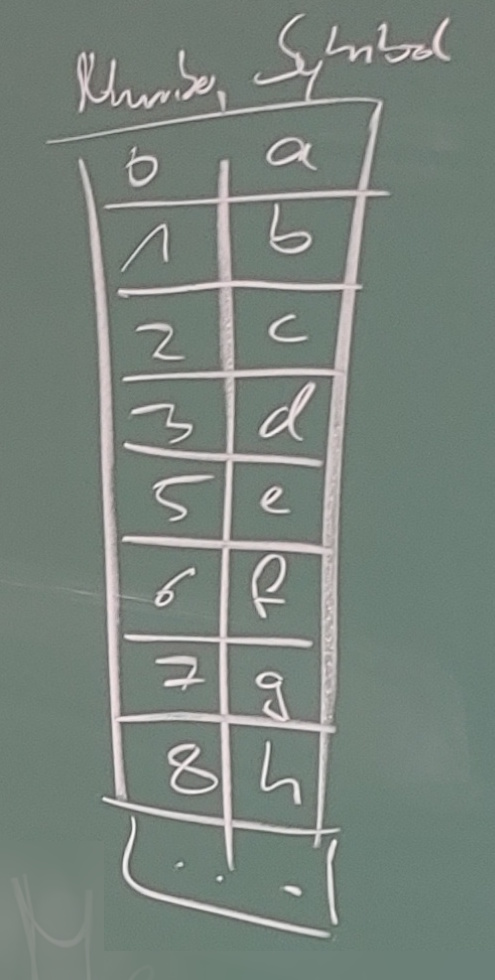 Number Symbol
0 a
1 b
2 c
3 d
5 e
6 f
7 g
8 h
...